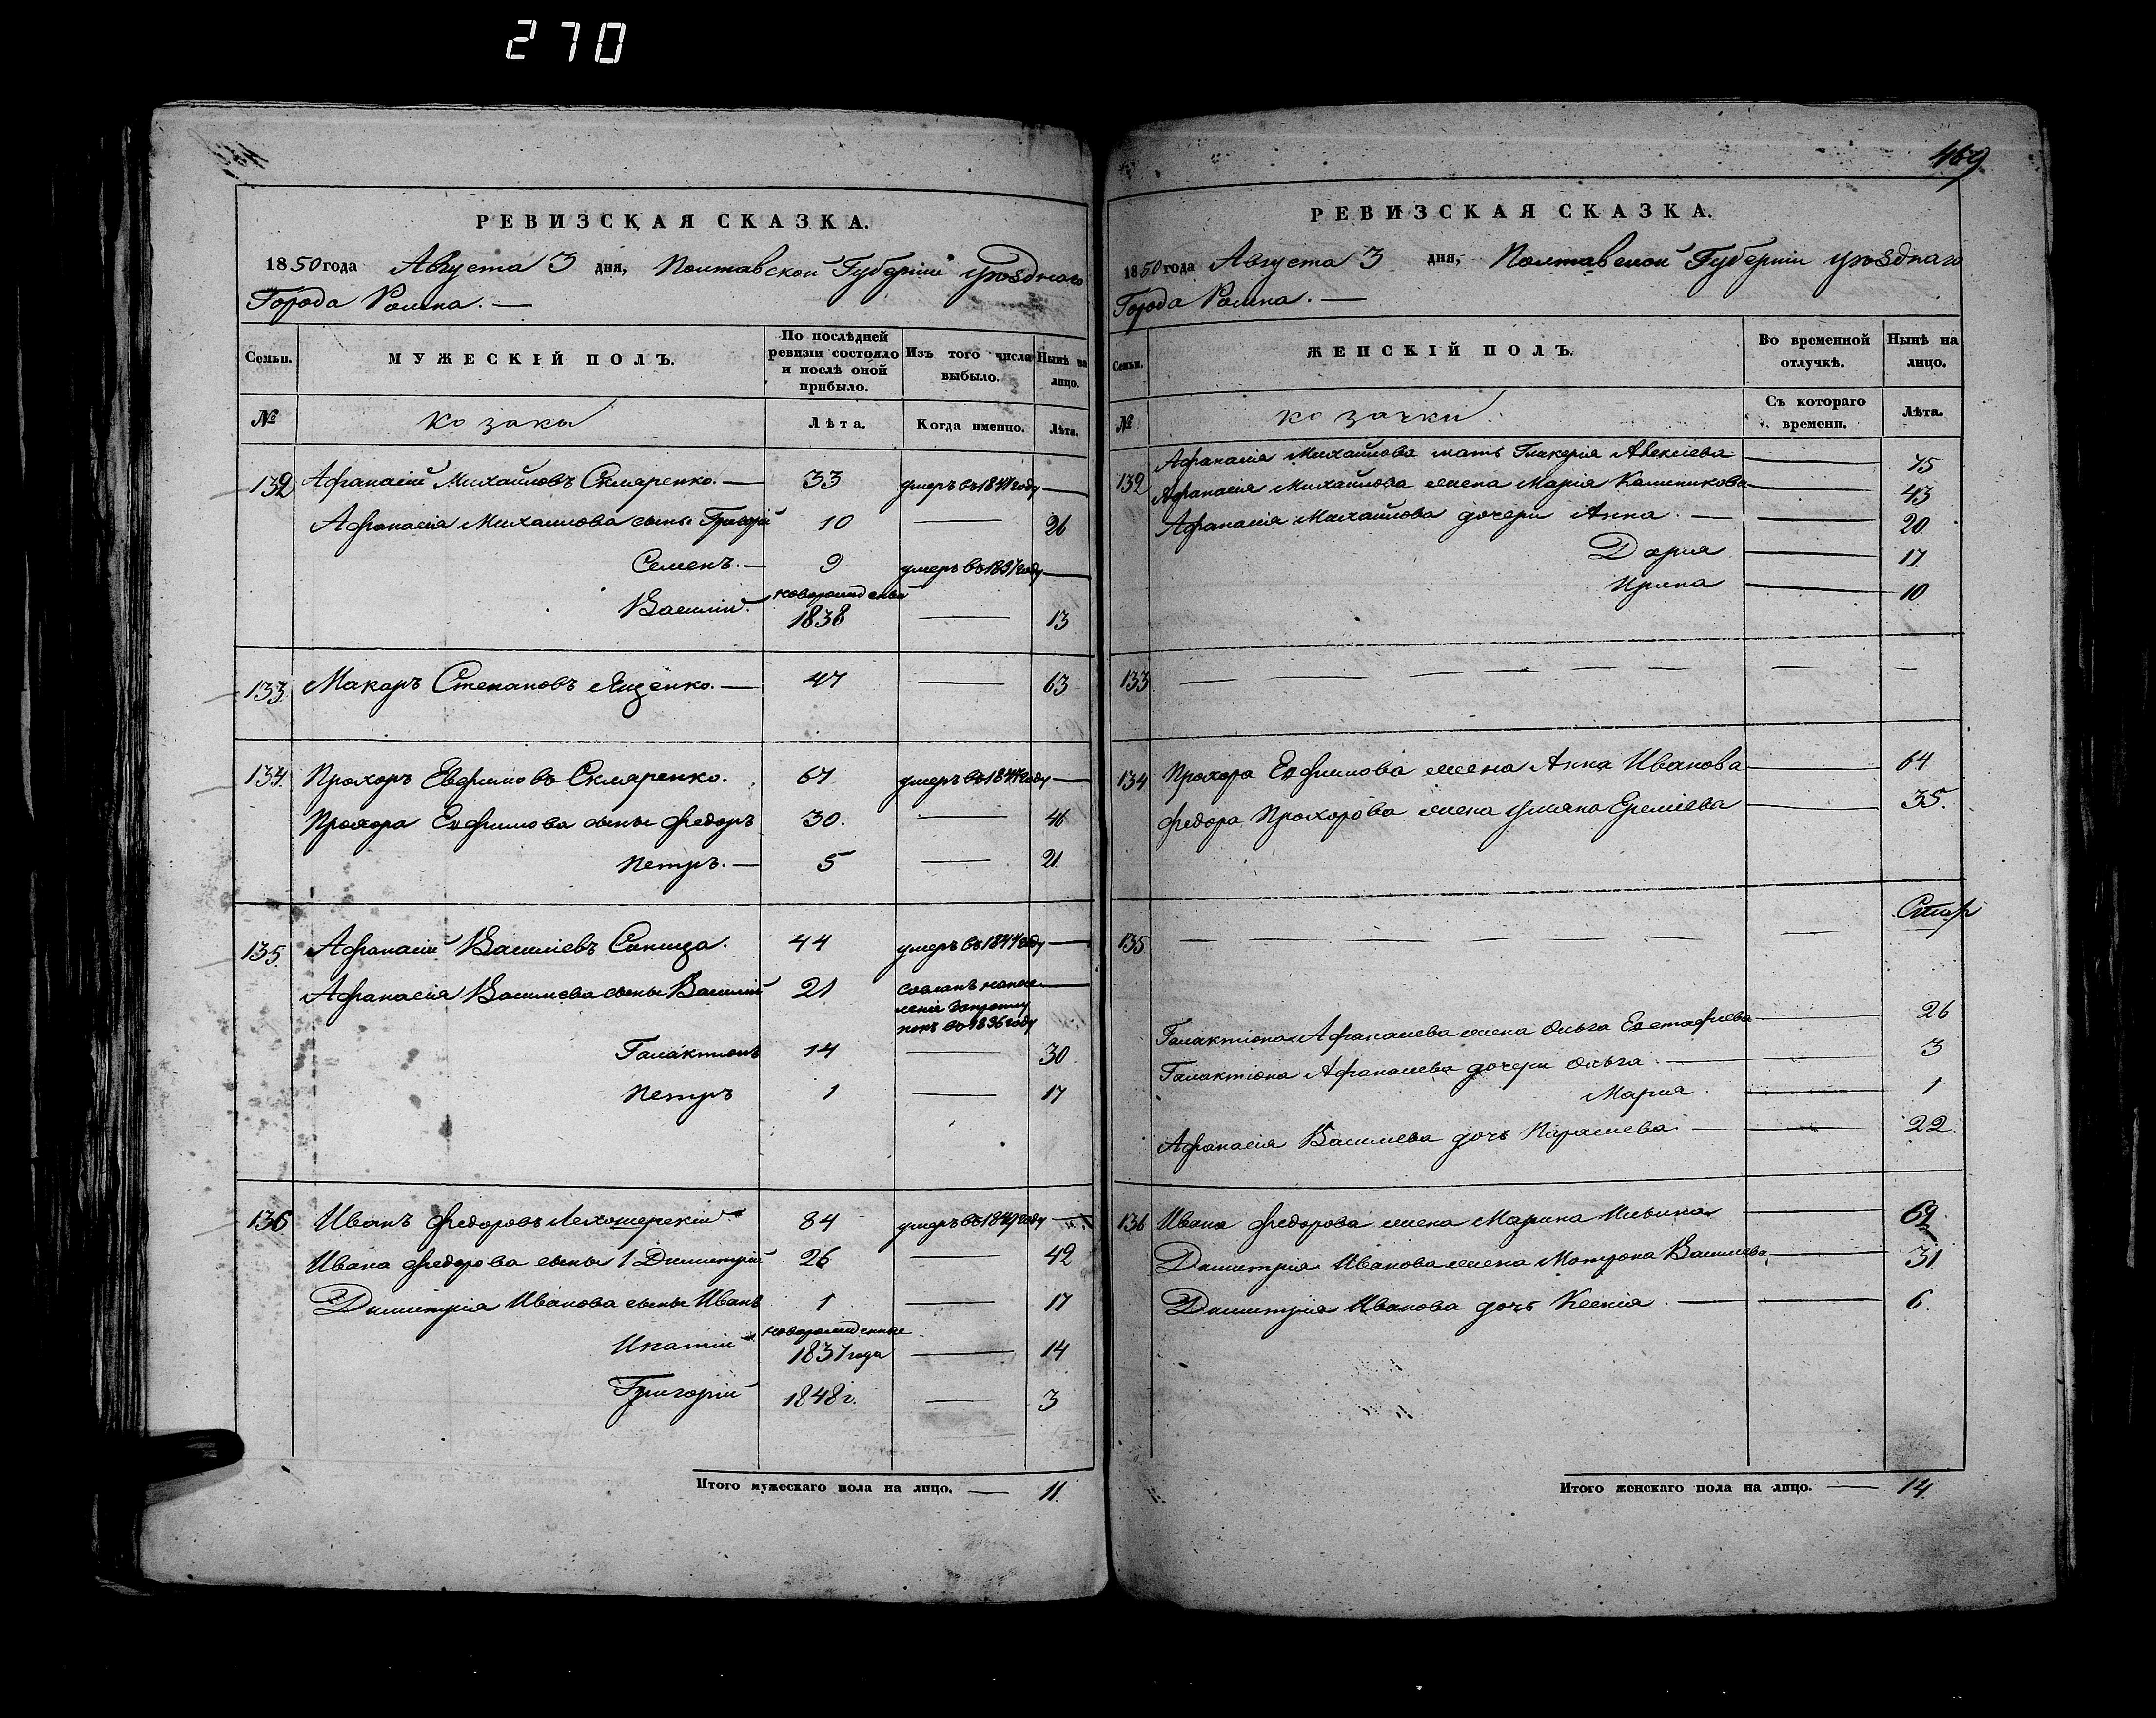 270
РЕВИЗСКАЯ СКАЗКА.
1850 года Августа 3 дня, Полтавской Губерніи уѣзднаго
Города Ромна. —
Семьи. МУЖЕСКІЙ ПОЛЪ. По послѣдней ревизіи состояло и послѣ оной прибыло. Изъ того числа выбыло. Нынѣ на лицо.
№ козаки Лѣта. Когда именно. Лѣта.
132 Афанасій Михайловъ Скляренко. — 33 умеръ въ 1841 году —
Афанасія Михайлова сыны Григорій 10 — 26
Семенъ. — 9 умеръ въ 1837 году —
Василій новорожденый 1838 — 13
133. Макаръ Степановъ Яценко. — 47 — 63
134. Прохоръ Евфимовъ Скляренко. 67 умеръ въ 1847 году —
Прохора Евфимова сыны Федоръ 30. — 46
Петръ. — 5 — 21.
135. Афанасій Василіевъ Синица. 44 умеръ въ 1844 году —
Афанасія Василиева сыны Василій 21 въ 1836 году —
Галактіонъ 14 — 30
Петръ 1 — 17
136 Иванъ Федоровъ 84 умеръ въ 1849 году —
Ивана Федорова сыны 1 Димитрій 26 — 42
Димитрія Иванова сыны Иванъ 1 — 17
Ипатій новорожденные 1837 года — 14
Григорій 1848 г. — 3
Итого мужескаго пола на лицо. — 11.
469
РЕВИЗСКАЯ СКАЗКА.
1850 года Августа 3 дня, Полтавской Губерніи уѣзднаго
Города Ромна. —
Семьи. ЖЕНСКІЙ ПОЛЪ. Во временной отлучкѣ. Нынѣ на лицо.
№ козачки Съ котораго времени. Лѣта.
Афанасія Михайлова мать Гликерія Алексіева — 75
132 Афанасія Михайлова жена Марія Калиникова — 43
Афанасія Михайлова дочери Анна. — — 20
Дария — 17
Ирина — 10
133 — — — — — — — —
134 Прохора Евфимова жена Анна Иванова — 64
Федора Прохорова жена Уліяна Ереміева — 35.
135 — — — — — — —
Галактіона Афанасиева жена Ольга Евстафиева — 26
Галактіона Афанасиева дочери Ольга — 3
Мария — 1
Афанасія Василиева дочь Параскева. — — 22.
136 Ивана Федорова жена Марина Ильина — 62
Димитрия Иванова жена Мотрона Василиева — 31.
Димитрія Иванова дочь Ксенія. — — 6.
Итого женскаго пола на лицо. — 14.